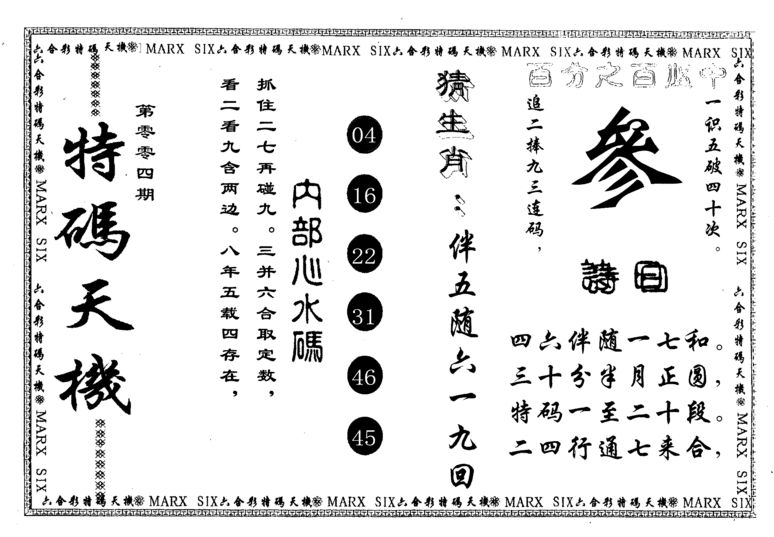 六合彩特碼天機※MARX SIX六合彩特碼天機※MARX SIX六合彩特碼天機※MARX SIX六合彩特碼天機※MARX SIX
百分之百必中
一识五破四十次。
參
追二捧九三连码，
詩曰
四六伴随一七和。
三十分半月正圆，
特码一至二十段。
二四行通七来合，
猜生肖：伴五随六一九回
04
16
22
31
46
45
内部心水碼
抓住二七再碰九。三并六合取定数，
看二看九含两边。八年五载四存在，
第零零四期
特碼天機
六合彩特碼天機※MARX SIX
六合彩特碼天機※MARX SIX
六合彩特碼天機※MARX SIX
六合彩特碼天機※MARX SIX
六合彩特碼天機※MARX SIX六合彩特碼天機※MARX SIX六合彩特碼天機※MARX SIX六合彩特碼天機※MARX SIX